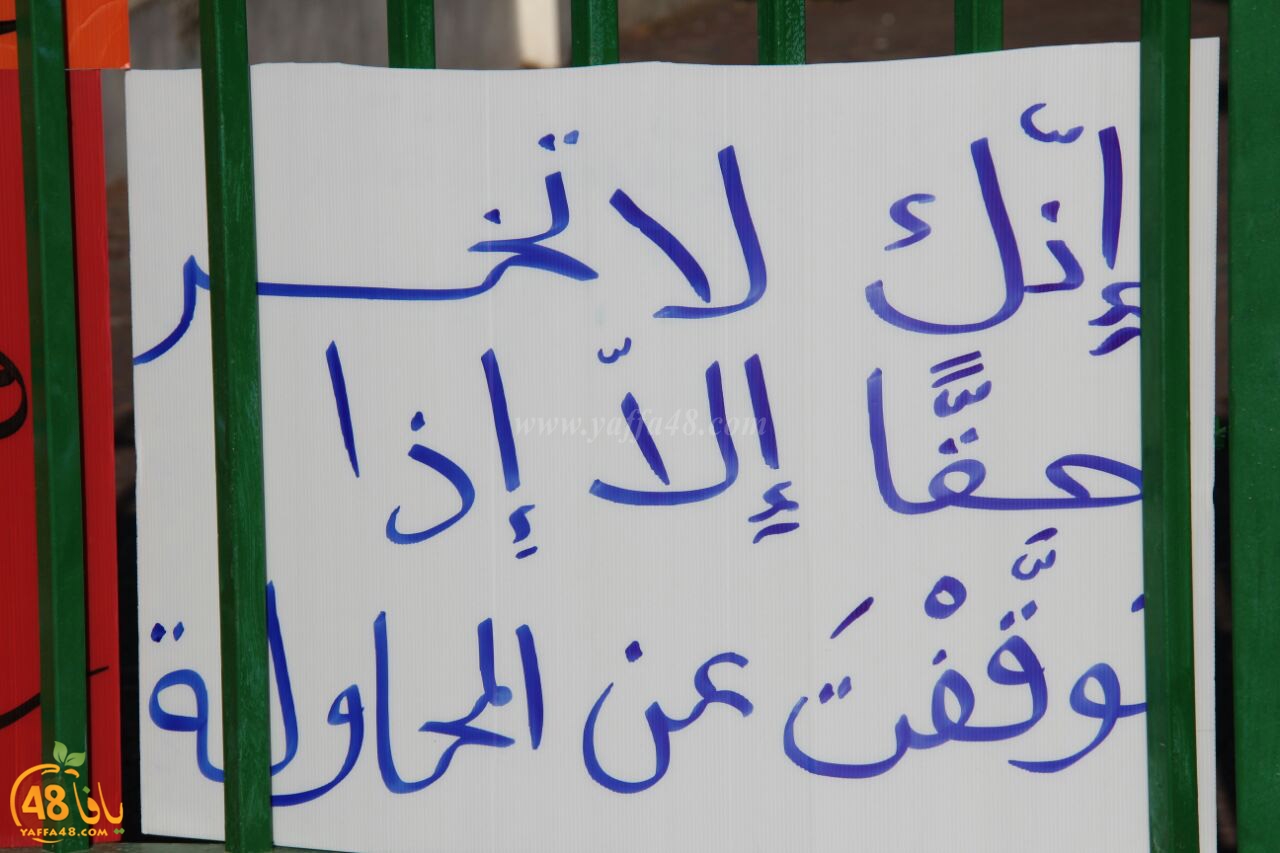 إنّك لا تخسر
حقًّا إلاّ إذا
توقَّفْتَ عن المحاولة
www.yaffa48.com
48 يافا
YAFFA48.COM